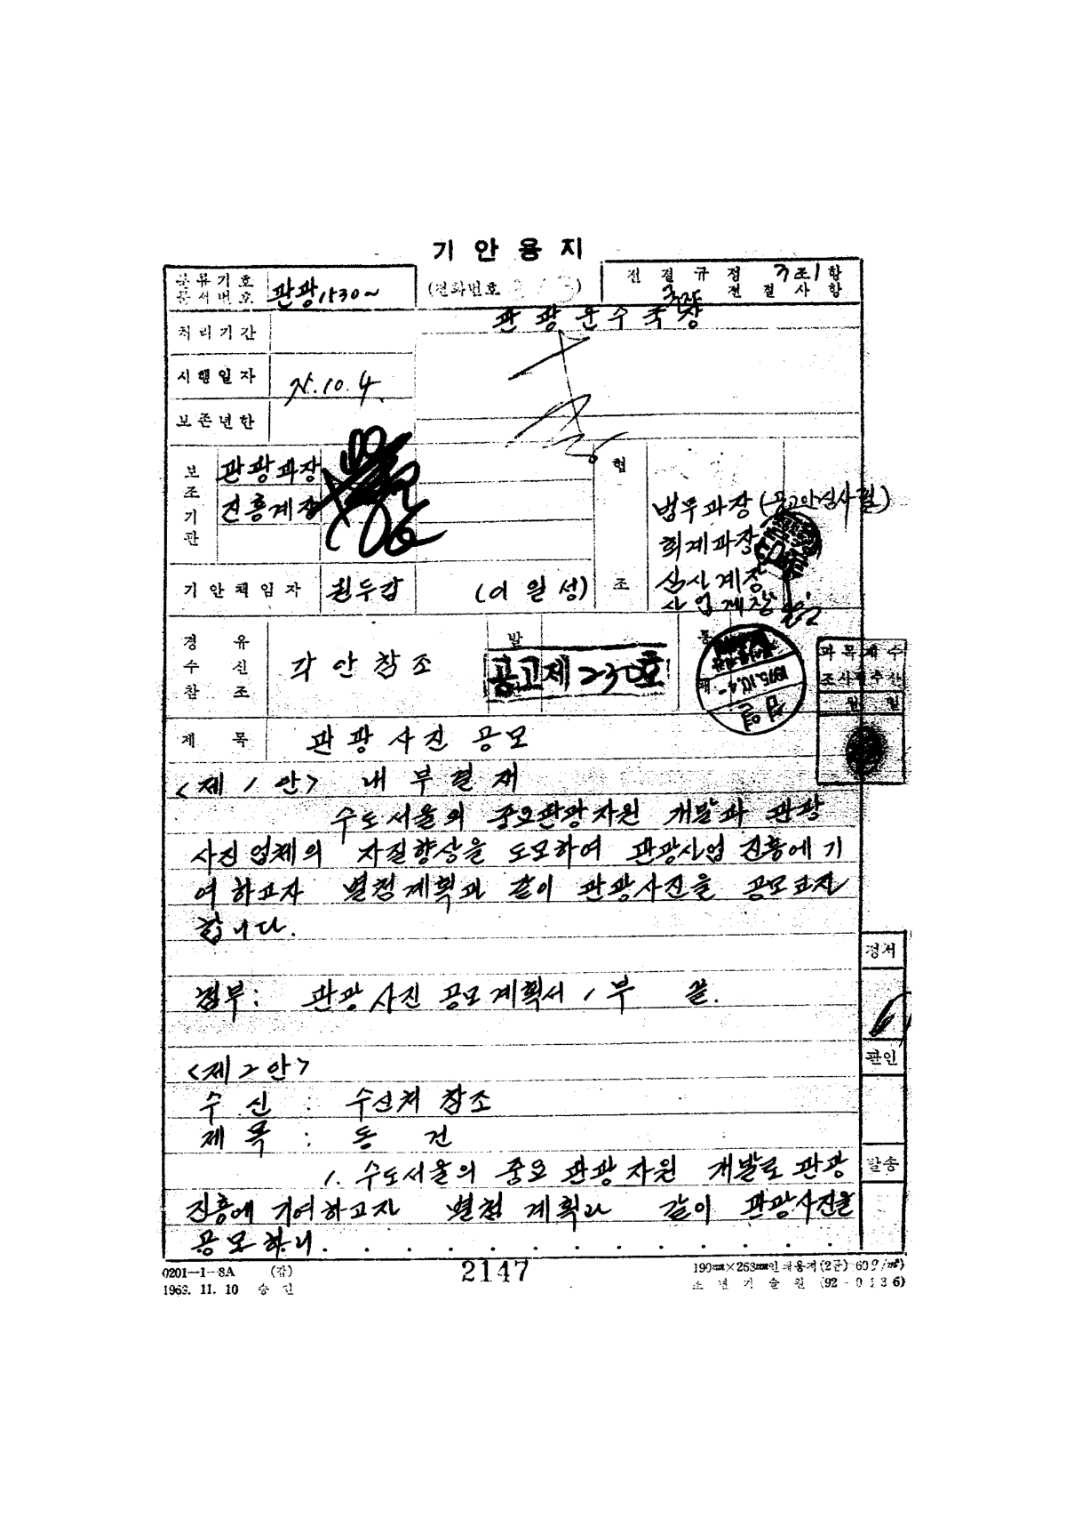 기 안 용 지
분류기호
문서번호
관광1530~
(전화번호 )
전 결 규 정 7조1항
국장 전 결 사 항
처리기간
관 광 운 수 국 장
시행일자
75.10.4.
보존년한
보조기관
관광과장
진흥계장
협조
법무과장(공고안심사필)
회계과장
심사계장
사업계장
기 안 책 임 자
권두갑
(이 일 성)
경 유
수 신
참 조
각 안 참 조
발
공고제230호
통
1975.10.4
과 목
조사
월 일
제 목
관 광 사 진 공 모
<제 1 안> 내 부 결 재
수도서울의 중요관광자원 개발과 관광
사진업체의 자질향상을 도모하여 관광사업 진흥에 기
여 하고자 별첨계획과 같이 관광사진을 공모코자
합니다.
정서
첨부: 관광사진 공모계획서 1부 끝.
관인
<제 2 안>
수 신 : 수신처 참조
제 목 : 동 건
발송
1. 수도서울의 중요 관광자원 개발로 관광
진흥에 기여하고자 별첨 계획과 같이 관광사진을
공모하니. . . . . . . . . . . . .
0201-1-8A (갑)
11. 10 승 인
2147
190mm×263mm인쇄용지(2급) 60g/㎡)
(92-0136)